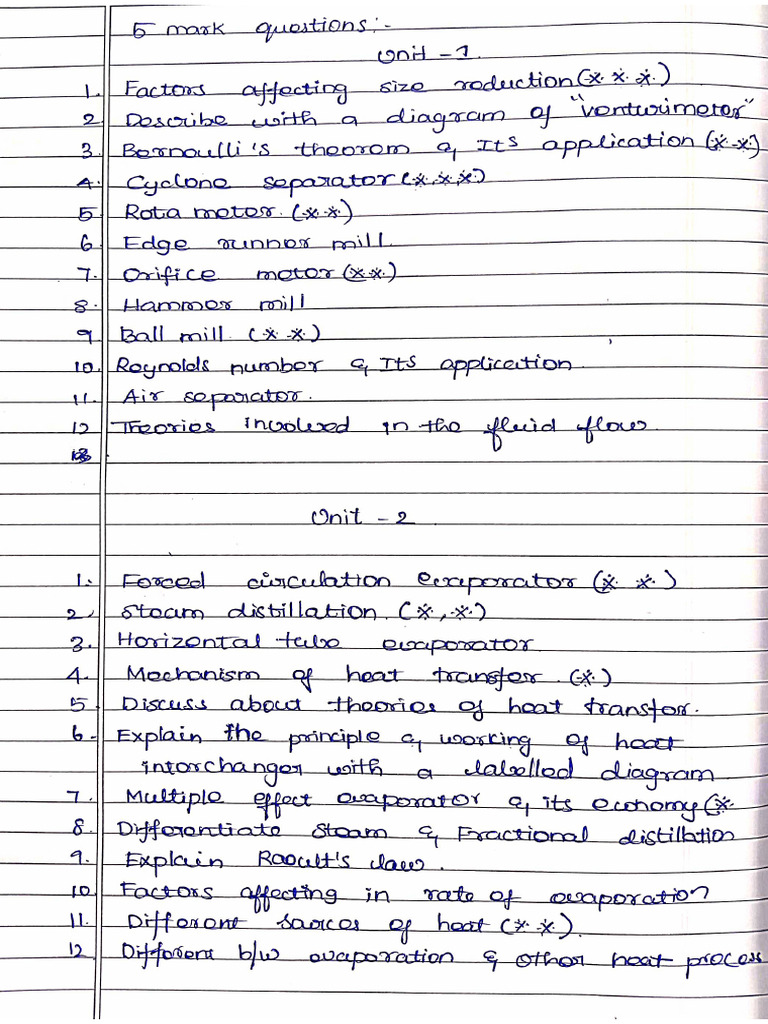 5 mark questions:-
Unit - 1
1. Factors affecting size reduction (* * *)
2 Describe with a diagram of "venturimeter"
3. Bernoulli's theorem & Its application (* *)
4. Cyclone separator (* * *)
5 Rota meter. (* *)
6 Edge runner mill.
7. Orifice meter (* *)
8. Hammer mill
9 Ball mill. (* *)
10. Reynolds number & Its application
11. Air separator.
12 Theories involved in the fluid flow
13
Unit - 2
1. Forced circulation evaporator (* *)
2, Steam distillation. (*, *)
3. Horizontal tube evaporator
4. Mechanism of heat transfer. (*)
5 Discuss about theories of heat transfer.
6- Explain the principle & working of heat
interchanger with a labelled diagram
7. Multiple effect evaporator & its economy (*
8. Differentiate steam & Fractional distillation
9. Explain Raoult's law.
10 Factors affecting in rate of evaporation
11. Different sources of heat (* *).
12 Different b/w evaporation & other heat process